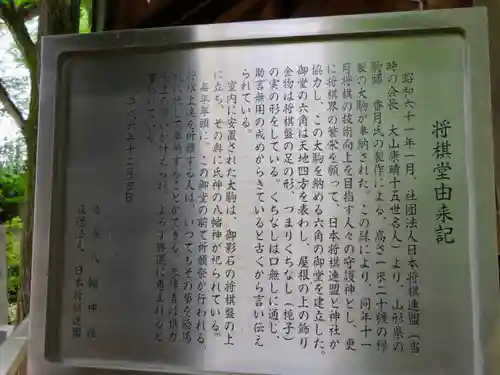 将棋堂由来記
昭和六十一年一月、社団法人日本将棋連盟(当
時の会長、大山康晴十五世名人)より、山形県の
駒師・香月氏の製作による、高さ一米二十糎の欅
製の大駒が奉納された。この縁により、同年十一
月将棋の技術向上を目指す人々の守護神とし、更
に将棋界の繁栄を願って、日本将棋連盟と神社が
協力し、この大駒を納める六角の御堂を建立した。
御堂の六角は天地四方を表わし、屋根の上の飾り
金物は将棋盤の足の形、つまりくちなし(梔子)
の実の形をしている。くちなしは口無しに通じ、
助言無用の戒めからきていると古くから言い伝え
られている。
室内に安置された大駒は、御影石の将棋盤の上
に立ち、その奥に氏神の八幡神が祀られている。
毎年年頭に、この御堂の前で祈願祭が行われる。
技術上達を祈願する人は、いつでもその駒を絵馬
平成六年十二月吉日
八幡神社
社団法人 日本将棋連盟